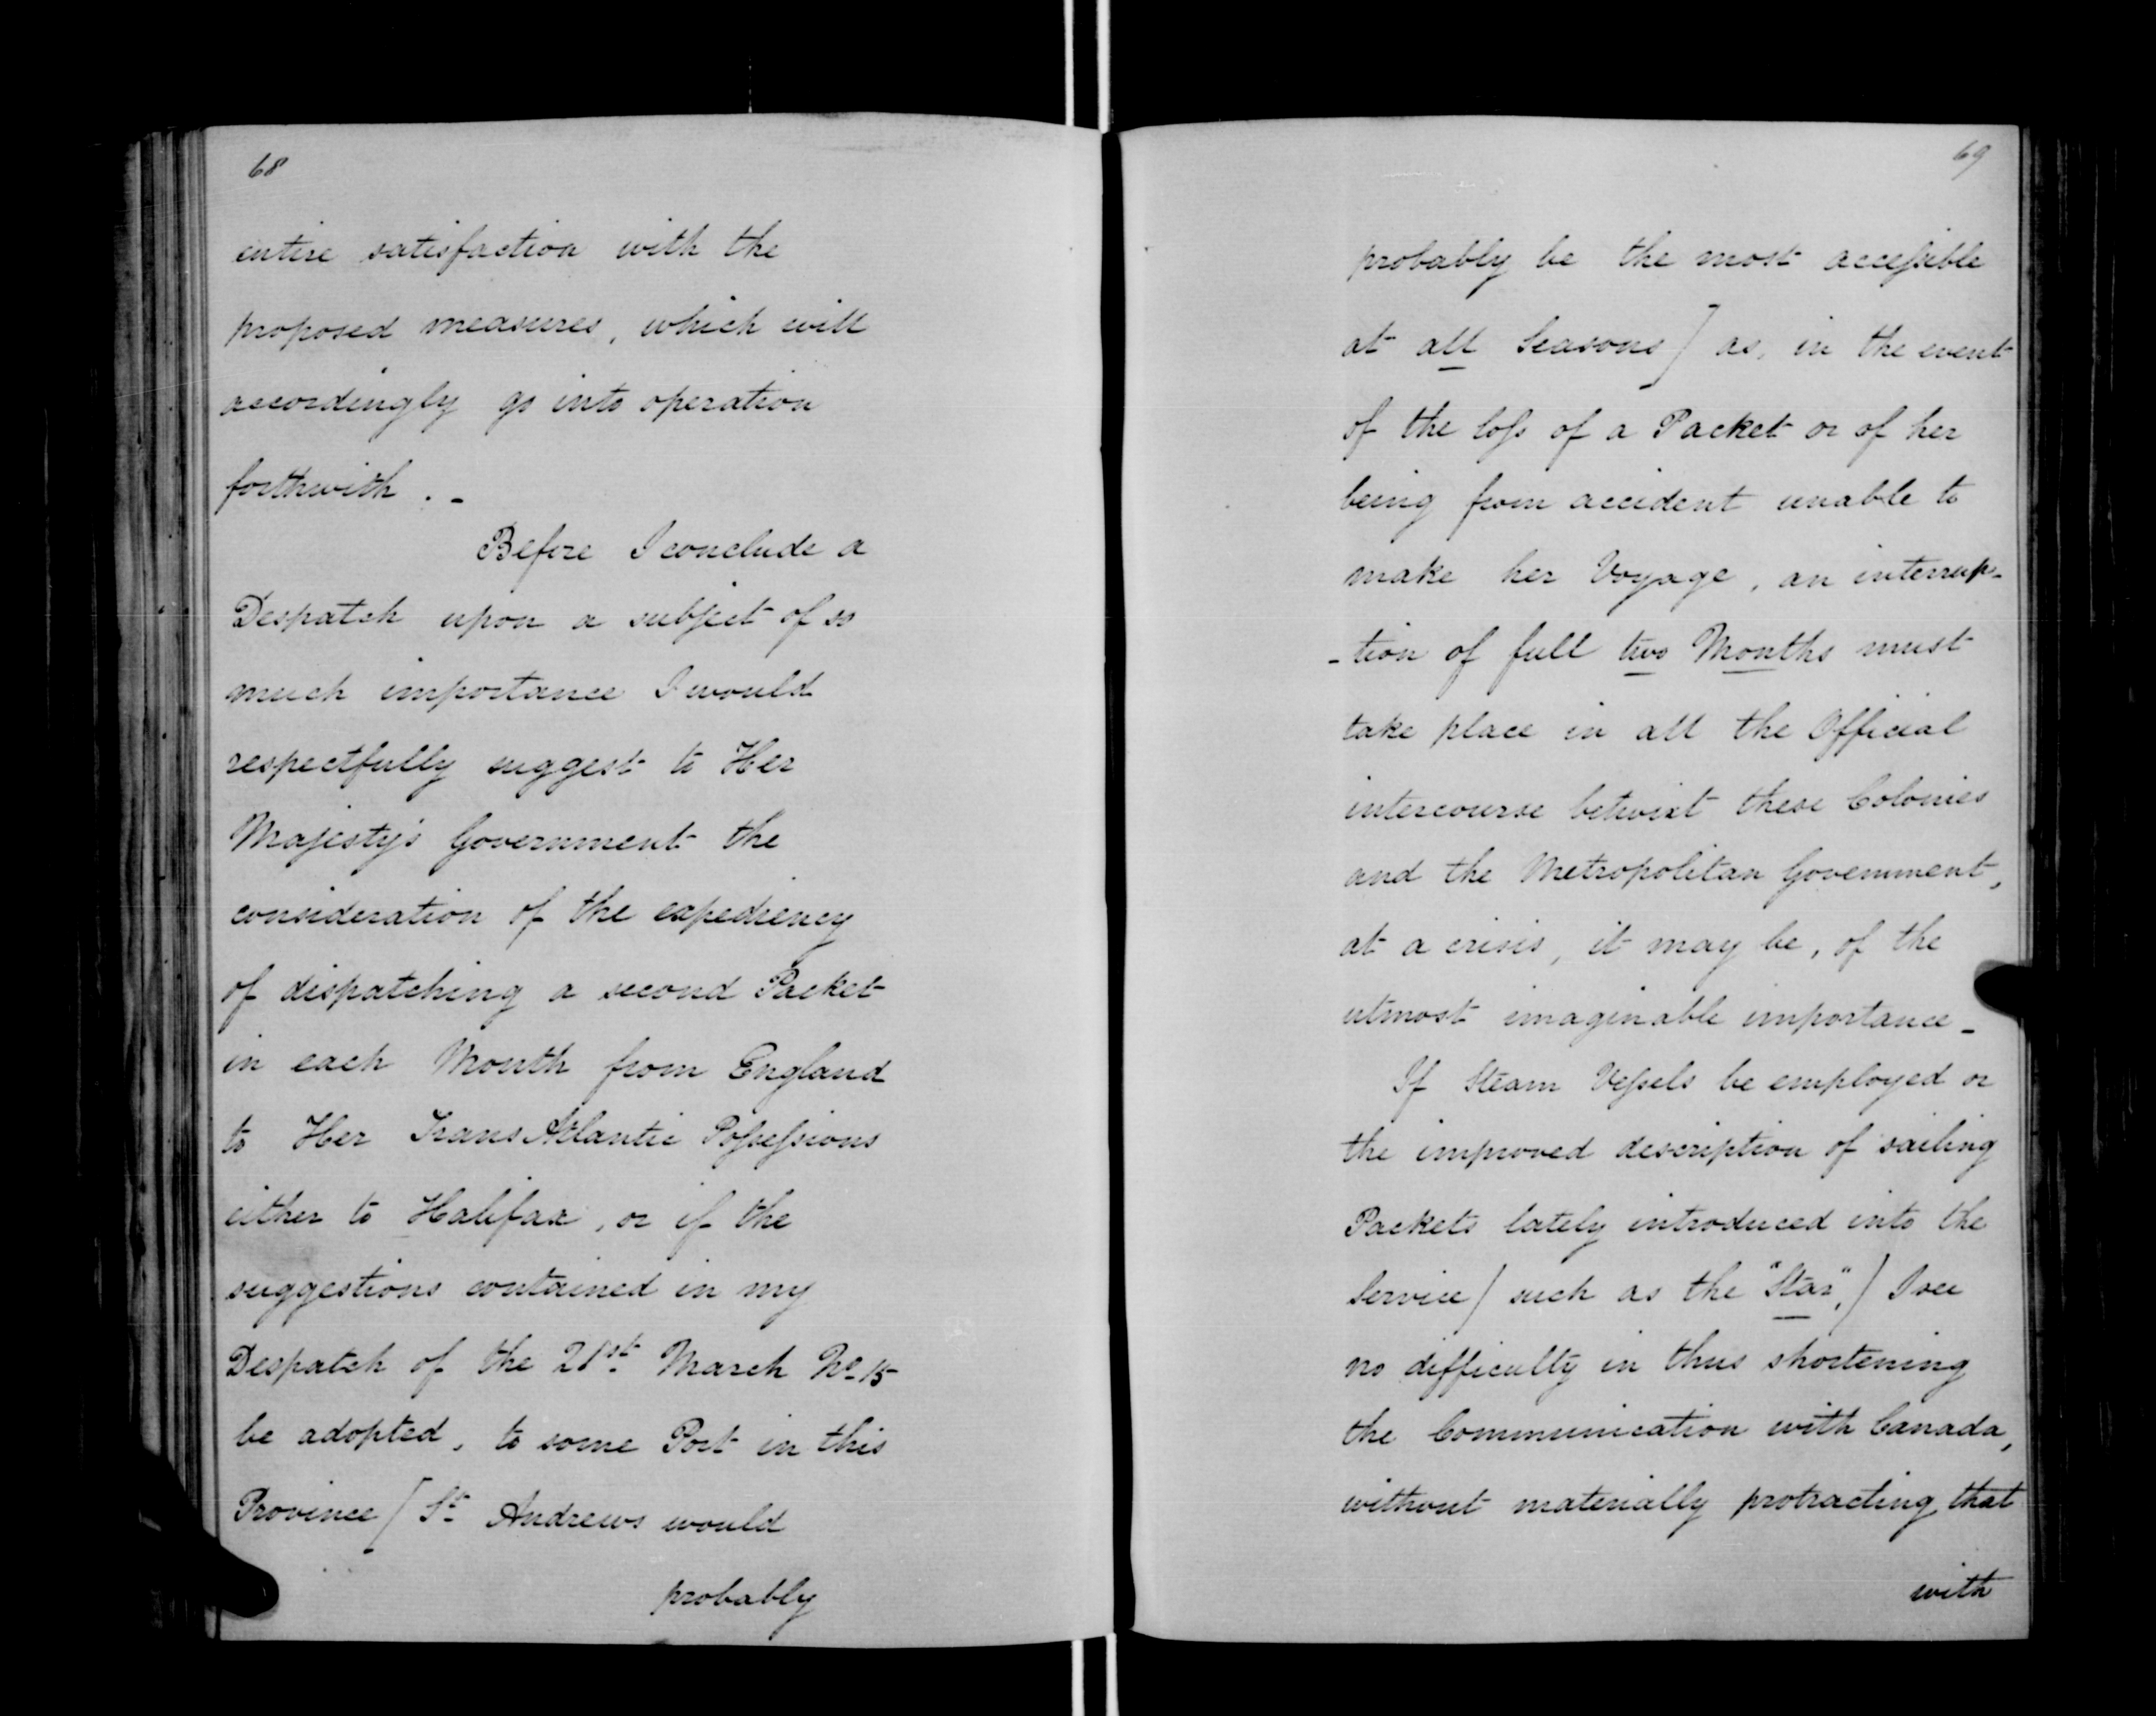 68
entire satisfaction with the
proposed measures, which will
accordingly go into operation
forthwith. -
Before I conclude a
Despatch upon a subject of so
much importance I would
respectfully suggest to Her
Majesty's Government the
consideration of the expediency
of dispatching a second Packet
in each Month from England
to Her Trans Atlantic Poſseſsions
either to Halifax, or if the
suggestions contained in my
Despatch of the 21st March No 15
be adopted, to some Port in this
Province [ St Andrews would
probably
69
probably be the most acceſsible
at all Seasons ] as, in the event
of the loſs of a Packet or of her
being from accident unable to
make her Voyage, an interrup-
-tion of full two Months must
take place in all the Official
intercourse betwixt these Colonies
and the Metropolitan Government,
at a crisis, it may be, of the
utmost imaginable importance -
If Steam Veſsels be employed or
the improved description of sailing
Packets lately introduced into the
Service / such as the "Star", / I see
no difficulty in thus shortening
the Communication with Canada,
without materially protracting that
with